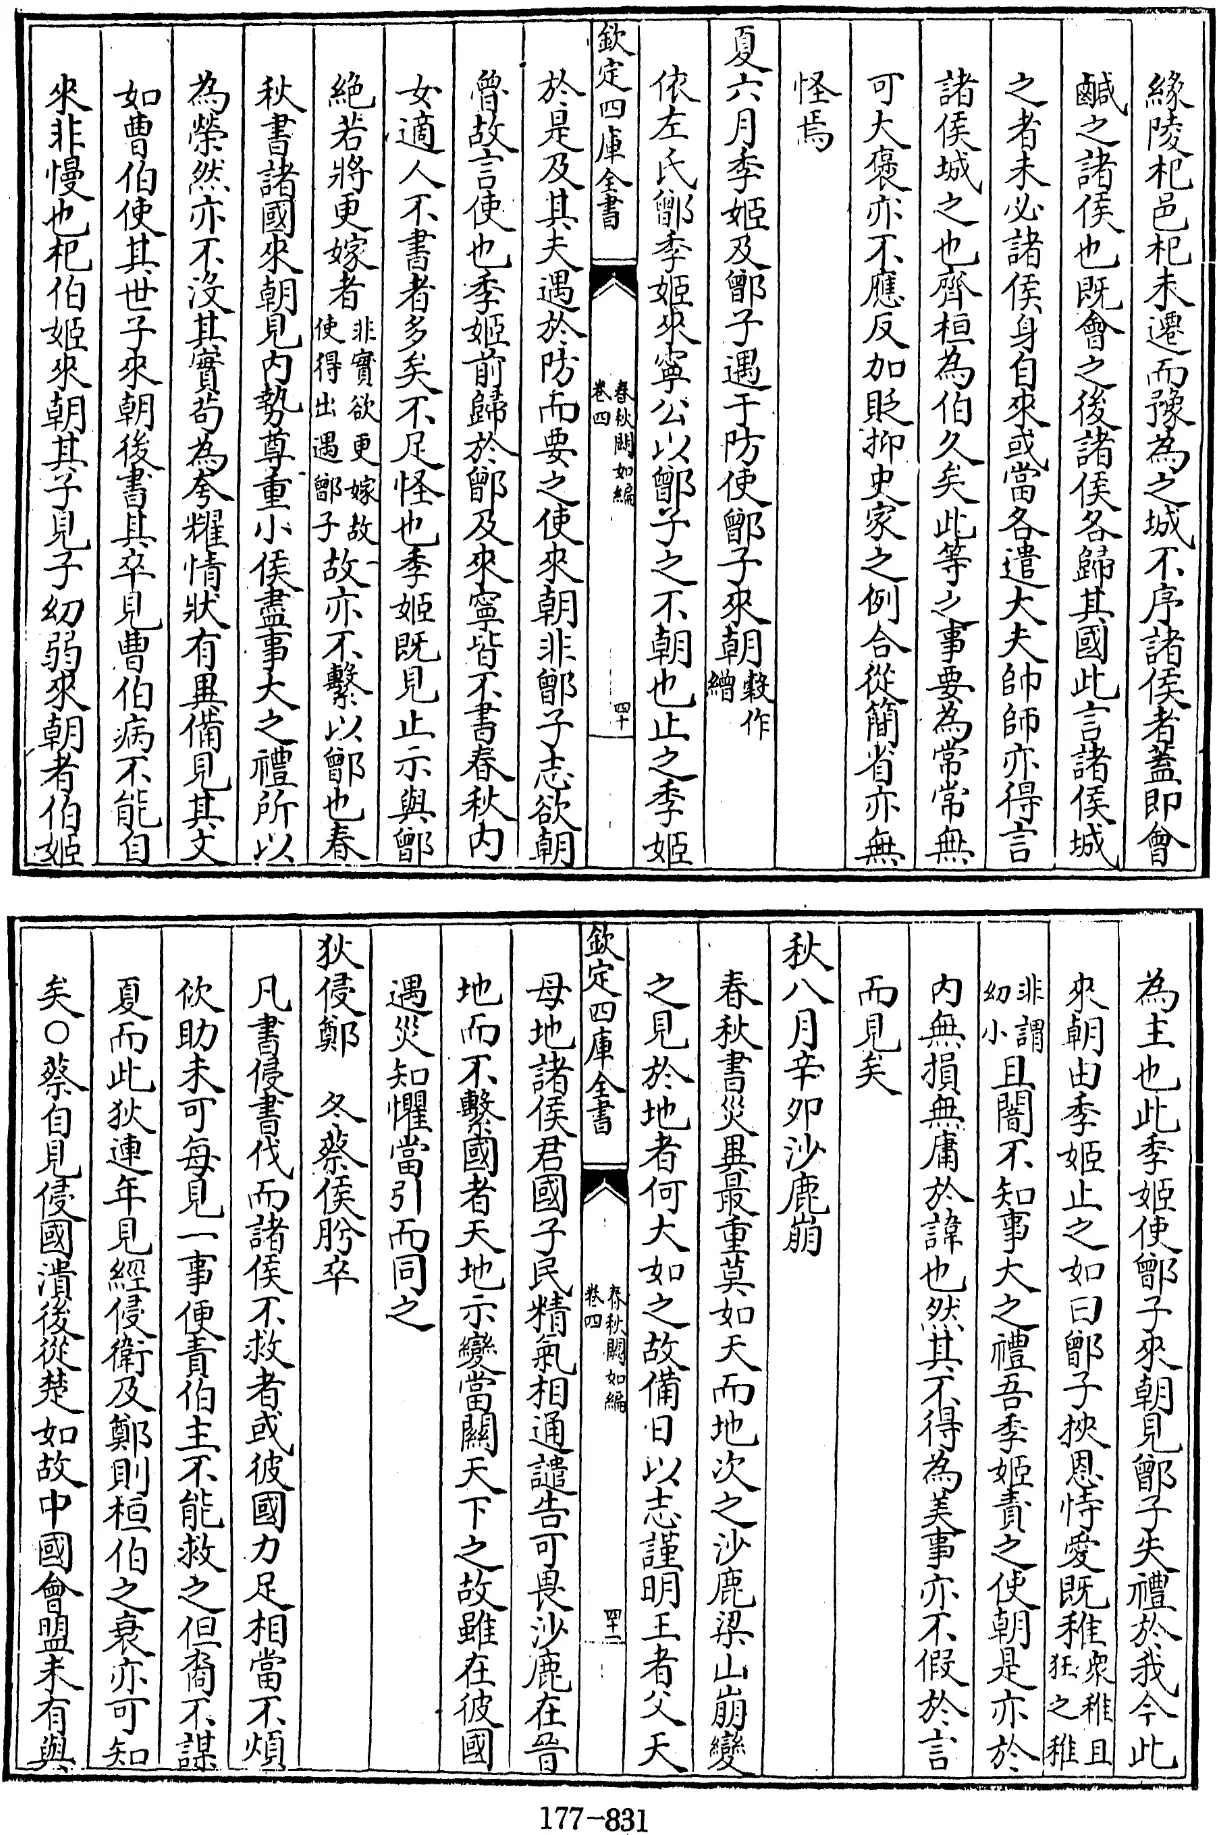 緣陵杞邑杞未遷而豫為之城不序諸侯者蓋即會
鹹之諸侯也既會之後諸侯各歸其國此言諸侯城
之者未必諸侯身自來或當各遣大夫帥師亦得言
諸侯城之也齊桓為伯久矣此等之事要為常常無
可大褒亦不應反加貶抑史家之例合從簡省亦無
怪焉
夏六月季姬及鄫子遇于防使鄫子來朝穀作繒
依左氏鄫季姬來寧公以鄫子之不朝也止之季姬
欽定四庫全書 春秋闕如編 卷四 四十
於是及其夫遇於防而要之使來朝非鄫子志欲朝
魯故言使也季姬前歸於鄫及來寧皆不書春秋內
女適人不書者多矣不足怪也季姬既見止示與鄫
絕若將更嫁者非實欲更嫁故使得出遇鄫子故亦不繫以鄫也春
秋書諸國來朝見內勢尊重小侯盡事大之禮所以
為榮然亦不沒其實苟為夸耀情狀有異備見其文
如曹伯使其世子來朝後書其卒見曹伯病不能自
來非慢也杞伯姬來朝其子見子幼弱來朝者伯姬
為主也此季姬使鄫子來朝見鄫子失禮於我今此
來朝由季姬止之如曰鄫子挾恩恃愛既稚衆稚且狂之稚
非謂幼小且闇不知事大之禮吾季姬責之使朝是亦於
內無損無庸於諱也然其不得為美事亦不假於言
而見矣
秋八月辛卯沙鹿崩
春秋書災異最重莫如天而地次之沙鹿梁山崩變
之見於地者何大如之故備日以志謹明王者父天
欽定四庫全書 春秋闕如編 卷四 四十一
母地諸侯君國子民精氣相通譴告可畏沙鹿在晉
地而不繫國者天地示變當關天下之故雖在彼國
遇災知懼當引而同之
狄侵鄭 冬蔡侯肹卒
凡書侵書伐而諸侯不救者或彼國力足相當不煩
佽助未可每見一事便責伯主不能救之但裔不謀
夏而此狄連年見經侵衛及鄭則桓伯之衰亦可知
矣○蔡自見侵國潰後從楚如故中國會盟未有與
177-831